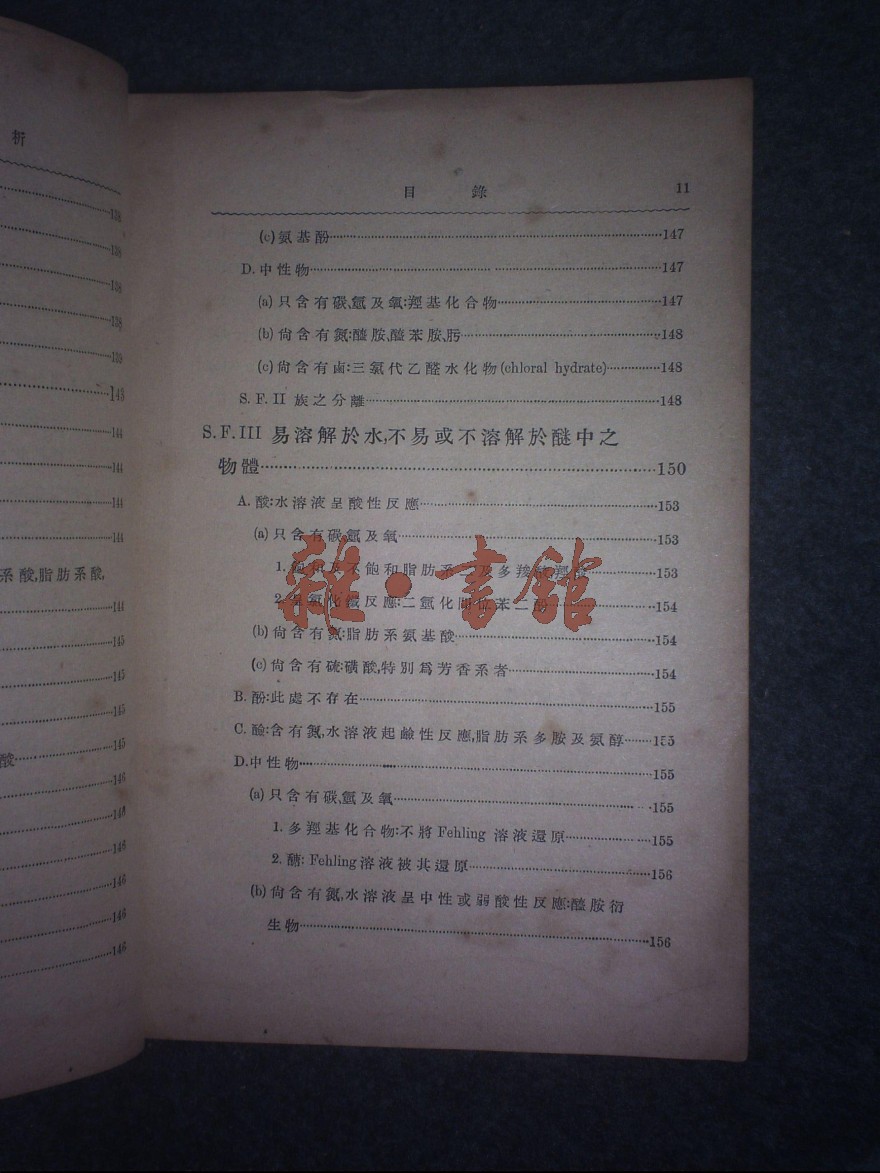 析
138
138
138
138
139
143
144
144
144
144
系酸,脂肪系酸,
144
145
145
145
酸 145
146
146
146
146
146
146
目 錄 11
(c)氨基酚 147
D.中性物 147
(a)只含有碳,氫及氧:羥基化合物 147
(b)尙含有氮:醯胺,醯苯胺,肟 148
(c)尙含有鹵:三氯代乙醛水化物(chloral hydrate) 148
S. F. II 族之分離 148
S.F.III 易溶解於水,不易或不溶解於醚中之
物體 150
A. 酸:水溶液呈酸性反應 153
(a)只含有碳,氫及氧 153
1. 飽和及不飽和脂肪系 及多羧 153
2. 氯化鐵反應:二氫化間位苯二酚 154
(b)尙含有氮:脂肪系氨基酸 154
(c)尙含有硫:磺酸,特別爲芳香系者 154
B. 酚:此處不存在 155
C. 鹼:含有氮,水溶液起鹼性反應,脂肪系多胺及氨醇 155
D.中性物 155
(a)只含有碳,氫及氧 155
1. 多羥基化合物:不將Fehling 溶液還原 155
2. 醣: Fehling溶液被其還原 156
(b)尙含有氮,水溶液呈中性或弱酸性反應:醯胺衍
生物 156
雜·書館